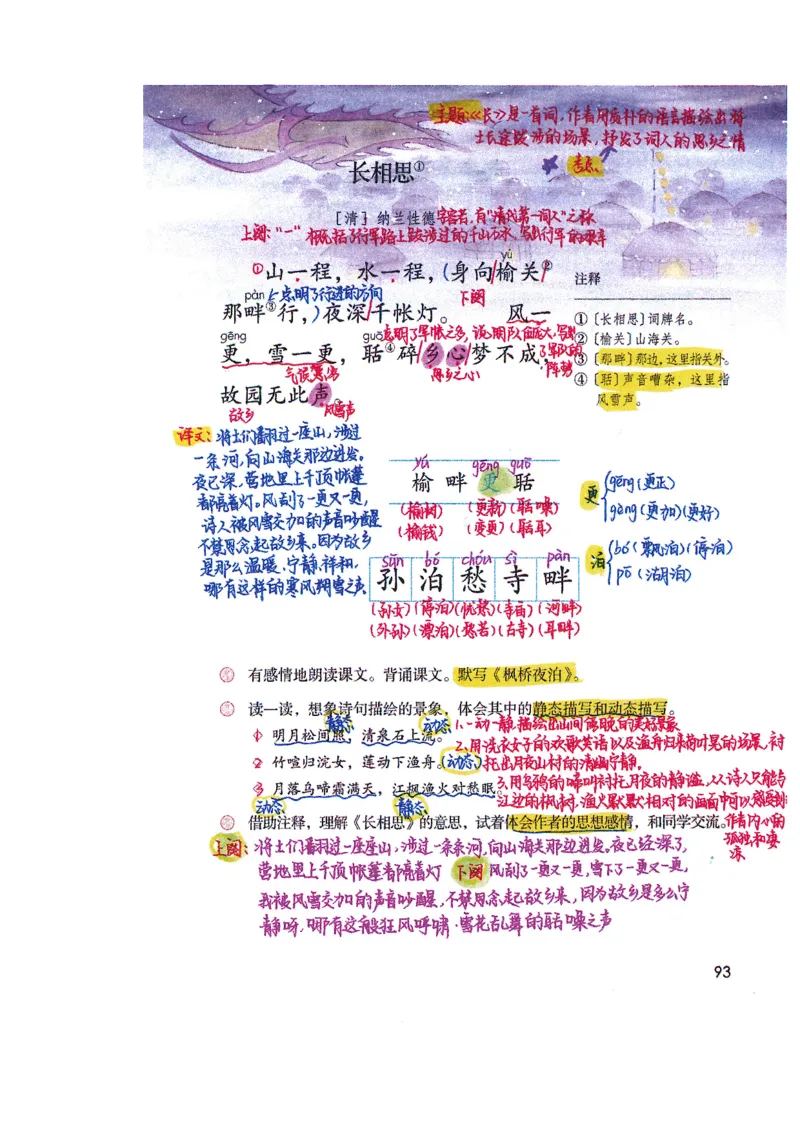 主题:《长》是一首词,作者用质朴的语言描绘出将
士长途跋涉的场景,抒发了词人的思乡之情
考点
长相思①
[清] 纳兰性德 字容若,有"清代第一词人"之称
上阕:"一"概括了行军路上跋涉过的千山万水,写出行军的艰辛
yú
①山一程,水一程,(身向/榆关/②
pàn 点明了行进的方向 下阕
那畔③行,)夜深/千帐灯。 风一
gēng guō 点明了军帐之多,说明队伍庞大,写出了军队的阵势
更,雪一更,聒④碎/乡心/梦不成,
气候寒冷 思乡之心
故园无此声。
故乡 风雪声
注释
①〔长相思〕词牌名。
②〔榆关〕山海关。
③〔那畔〕那边,这里指关外。
④〔聒〕声音嘈杂,这里指
风雪声。
译文:将士们翻过一座山,涉过
一条河,向山海关那边进发。
夜已深,营地里上千顶帐篷
都亮着灯。风刮了一更又一更,
诗人被风雪交加的声音吵醒
不禁思念起故乡来。因为故乡
是那么温暖、宁静、祥和,
哪有这样的寒风朔雪之声。
yú gēng guō
榆 畔 更 聒
(榆树) (更新)(聒噪)
(榆钱) (变更)(聒耳)
更 gēng(更正)
gèng(更加)(更好)
sūn bó chóu sì pàn
孙 泊 愁 寺 畔
(孙女)(停泊)(忧愁)(寺庙)(河畔)
(外孙)(漂泊)(愁苦)(古寺)(耳畔)
泊 bó(飘泊)(停泊)
pō(湖泊)
有感情地朗读课文。背诵课文。默写《枫桥夜泊》。
读一读,想象诗句描绘的景象,体会其中的静态描写和动态描写。
静态 动态 1、一动一静,描绘出山间傍晚的美好景象
① 明月松间照,清泉石上流。
2、用洗衣女子的欢歌笑语以及渔舟归来荷叶晃的场景,衬
② 竹喧归浣女,莲动下渔舟。(动态)托出月夜山村的清幽宁静。
③ 月落乌啼霜满天,江枫渔火对愁眠。3、用乌鸦的啼叫衬托月夜的静谧,从诗人只能与
动态 静态 江边的枫树,渔火默默相对的画面中可以感受到
借助注释,理解《长相思》的意思,试着体会作者的思想感情,和同学交流。作者内心的
孤独和凄
凉
上阕:将士们翻过一座座山,涉过一条条河,向山海关那边进发,夜已经深了,
营地里上千顶帐篷都亮着灯 下阕 风刮了一更又一更,雪下了一更又一更,
我被风雪交加的声音吵醒,不禁思念起故乡来,因为故乡是多么宁
静呀,哪有这般狂风呼啸、雪花乱舞的聒噪之声
93